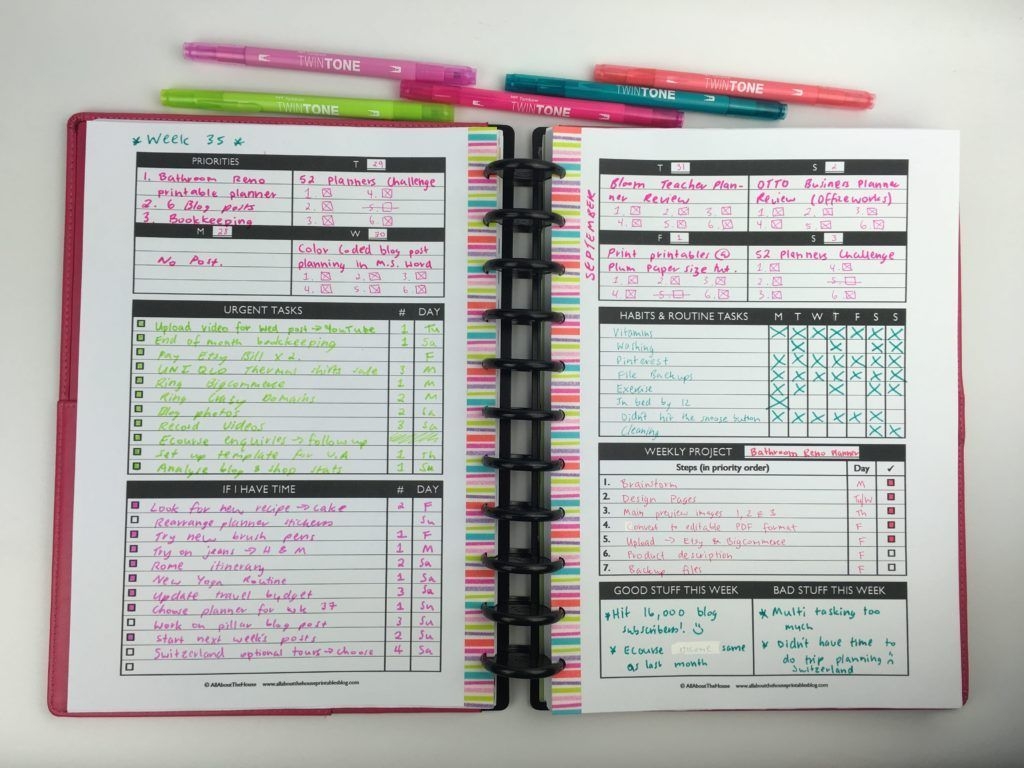 TWINTONE
TWINTONE
TWINTONE
TWINTONE
TWINTONE
* Week 35 *
PRIORITIES
1. Bathroom Reno
printable planner
2. 6 Blog posts
3. Bookkeeping
T 29
52 Planners Challenge
1. 4.
2. 5.
3. 6.
M 28
No Post.
W 30
Color Coded blog post
planning in M.S. Word
1. 2. 3.
4. 5. 6.
URGENT TASKS # DAY
Upload video for wed post → YouTube 1 Tu
End of month bookkeeping 1 Sa
Pay Etsy Bill x 2. F
UNIQLO Thermal shirts sale 3 M
Ring bigcommerce 1 M
Ring Crazy Domains 2 M
Blog photos 2 Sa
Record videos 3 Sa
Ecourse enquiries → follow up
Set up template for V.A 1 Th
Analyse blog & shop stats 1 Su
IF I HAVE TIME # DAY
Look for new recipe → cake 2 F
Rearrange planner stickers Su
Try new brush pens 1 F
Try on jeans → H & M 1 M
Rome itinerary 2 Sa
New Yoga Routine 1 Sa
Update travel budget 3 Sa
Choose planner for wk 37 1 Su
Work on pillar blog post 3 Su
Start next week's posts 2 Su
Switzerland optional tours → choose 4 Sa
© AllAboutTheHouse www.allaboutthehouseprintablesblog.com
SEPTEMBER
T 31
Bloom Teacher Plan-
ner Review
1. 2. 3.
4. 5. 6.
S 2
OTTO Business Planner
Review (Officeworks)
1. 2. 3.
4. 5. 6.
F 1
Print printables @
Plum Paper size tut.
1. 2. 3.
4. 5. 6.
S 3
52 Planners Challenge
1. 4.
2. 5.
3. 6.
HABITS & ROUTINE TASKS M T W T F S S
Vitamins
Washing
Pinterest
File Backups
Exercise
In bed by 12
Didn't hit the snooze button
Cleaning
WEEKLY PROJECT Bathroom Reno Planner
Steps (in priority order) Day ✓
1. Brainstorm M
2. Design Pages Tu/W
3. Main preview images 1, 2 & 3 Th
4. Convert to editable PDF format F
5. Upload → Etsy & BigCommerce F
6. Product description F
7. Backup files F
GOOD STUFF THIS WEEK
* Hit 16,000 blog
subscribers!
* Ecourse income same
as last month
BAD STUFF THIS WEEK
* Multi tasking too
much
* Didn't have time to
do trip planning
Switzerland
© AllAboutTheHouse www.allaboutthehouseprintablesblog.com